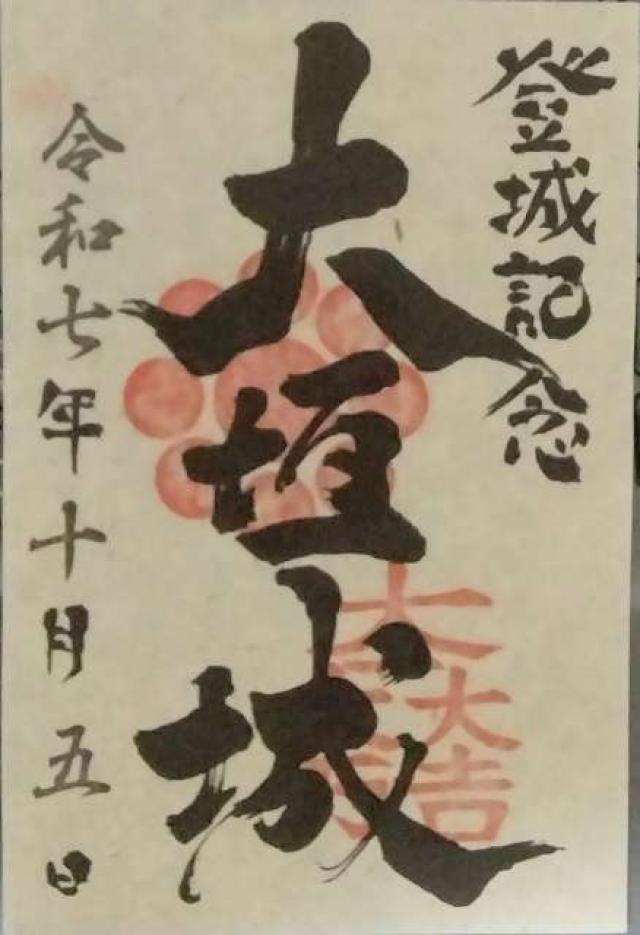 登城記念
大垣城
大一大万大吉
令和七年十月五日